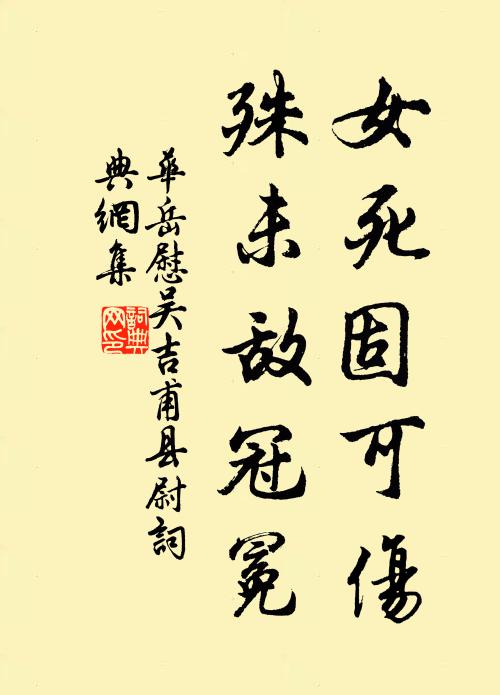 女死固可傷
殊未敌冠冕
華岳慰吴吉甫县尉詞
典網集
詞典
网印